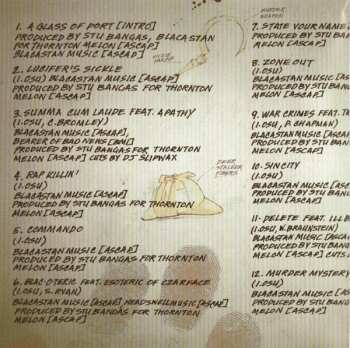 1. A GLASS OF PORT [INTRO]
PRODUCED BY STU BANGAS, BLACASTAN
FOR THORNTON MELON [ASCAP]
BLACASTAN MUSIC [ASCAP]
2. LUCIFER'S SICKLE
(I.OSU) BLACASTAN MUSIC [ASCAP]
PRODUCED BY STU BANGAS FOR THORNTON
MELON [ASCAP]
3. SUMMA CUM LAUDE FEAT. APATHY
(I.OSU, C.BROMLEY)
BLACASTAN MUSIC [ASCAP],
BEARER OF BAD NEWS [BMI]
PRODUCED BY STU BANGAS FOR THORNTON
MELON [ASCAP] CUTS BY DJ SLIPWAX
4. RAP KILLIN'
(I.OSU)
BLACASTAN MUSIC [ASCAP]
PRODUCED BY STU BANGAS FOR THORNTON
MELON [ASCAP]
5. COMMANDO
(I.OSU)
BLACASTAN MUSIC [ASCAP]
PRODUCED BY STU BANGAS FOR THORNTON
MELON [ASCAP]
6. BLAC-OTERIC FEAT. ESOTERIC OF CZARFACE
(I.OSU, S. RYAN)
BLACASTAN MUSIC [ASCAP], HEADSNELLMUSIC [ASCAP]
PRODUCED BY STU BANGAS FOR THORNTON
MELON [ASCAP]
DEER
STALKER
7. STATE YOUR NAME
PRODUCED BY STU BANGAS
MELON [ASCAP]
8. ZONE OUT
(I.OSU)
BLACASTAN MUSIC [ASCAP]
PRODUCED BY STU BANGAS
MELON [ASCAP]
9. WAR CRIMES FEAT.
(I.OSU, P. CHAPMAN)
BLACASTAN MUSIC [ASCAP]
PRODUCED BY STU BANGAS
MELON [ASCAP]
10. SIN CITY
(I.OSU)
BLACASTAN MUSIC [ASCAP]
PRODUCED BY STU BANGAS
MELON [ASCAP]
11. DELETE FEAT. ILL B
(I.OSU, N. BRAUNSTEIN)
BLACASTAN MUSIC [ASCAP]
PRODUCED BY STU BANGAS
MELON [ASCAP] CUTS
12. MURDER MYSTERY
(I.OSU)
BLACASTAN MUSIC [ASCAP]
PRODUCED BY STU BANGAS
MELON [ASCAP]